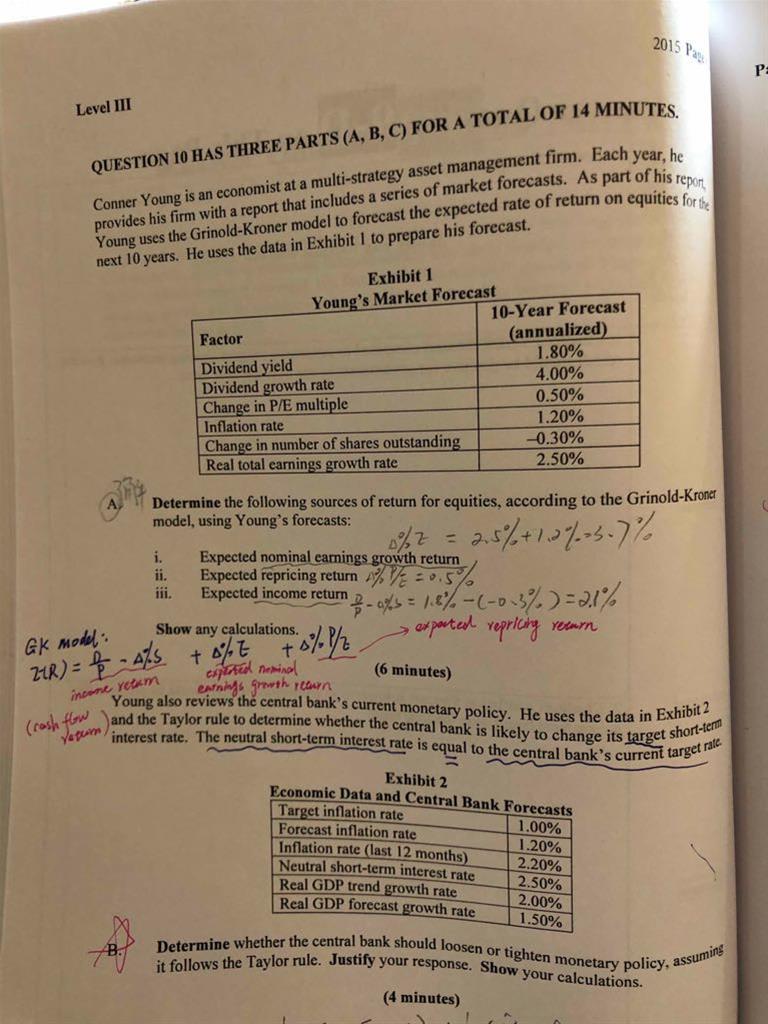 2015 Page
Level III
QUESTION 10 HAS THREE PARTS (A, B, C) FOR A TOTAL OF 14 MINUTES.
Conner Young is an economist at a multi-strategy asset management firm. Each year, he
provides his firm with a report that includes a series of market forecasts. As part of his report,
Young uses the Grinold-Kroner model to forecast the expected rate of return on equities for the
next 10 years. He uses the data in Exhibit 1 to prepare his forecast.
Exhibit 1
Young's Market Forecast
Factor 10-Year Forecast (annualized)
Dividend yield 1.80%
Dividend growth rate 4.00%
Change in P/E multiple 0.50%
Inflation rate 1.20%
Change in number of shares outstanding –0.30%
Real total earnings growth rate 2.50%
A. Determine the following sources of return for equities, according to the Grinold-Kroner
model, using Young's forecasts:
Δ%E = 2.5%+1.2%=3.7%
i. Expected nominal earnings growth return
ii. Expected repricing return Δ% P/E = 0.5%
iii. Expected income return D/P - Δ%S = 1.8% - (-0.3%) = 2.1%
Show any calculations. → expected repricing return
GK model:
E(R) = D/P - Δ%S + Δ%E + Δ% P/E
income return expected nominal earnings growth return
(6 minutes)
(cash flow return)
Young also reviews the central bank's current monetary policy. He uses the data in Exhibit 2
and the Taylor rule to determine whether the central bank is likely to change its target short-term
interest rate. The neutral short-term interest rate is equal to the central bank's current target rate.
Exhibit 2
Economic Data and Central Bank Forecasts
Target inflation rate 1.00%
Forecast inflation rate 1.20%
Inflation rate (last 12 months) 2.20%
Neutral short-term interest rate 2.50%
Real GDP trend growth rate 2.00%
Real GDP forecast growth rate 1.50%
B. Determine whether the central bank should loosen or tighten monetary policy, assuming
it follows the Taylor rule. Justify your response. Show your calculations.
(4 minutes)